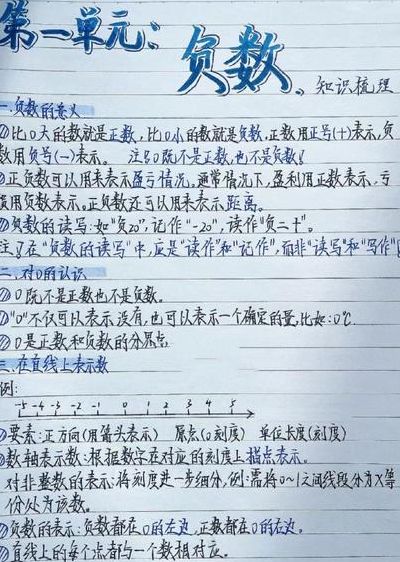 第一单元:
负数。知识梳理
一.负数的意义
①比0大的数就是正数,比0小的数就是负数,正数用正号(+)表示,负
数用负号(-)表示。 注:0既不是正数,也不是负数!
②正负数可以用来表示盈亏情况。通常情况下,盈利用正数表示,亏
损用负数表示。正负数还可以用来表示距离。
③负数的读写:如"负20",记作"-20",读作"负二十"。
注:在"负数的读写"中,应是"读作"和"记作",而非"读写"和"写作"!
二.对0的认识
①0既不是正数也不是负数。
②"0"不仅可以表示没有,也可以表示一个确定的量,比如:0℃
③0是正数和负数的分界点
三.在直线上表示数
例:
-5 -4 -3 -2 -1 0 1 2 3 4 5
①要素:正方向(用箭头表示) 原点(0刻度) 单位长度(刻度)
②数轴表示数:根据数字在对应的刻度上描点表示。
对非整数的表示:将刻度进一步细分,例:需将0~1之间线段分为X等
份处为该数。
负数的表示:负数都在0的左边,正数都在0的右边。
直线上的每个点都与一个数相对应。